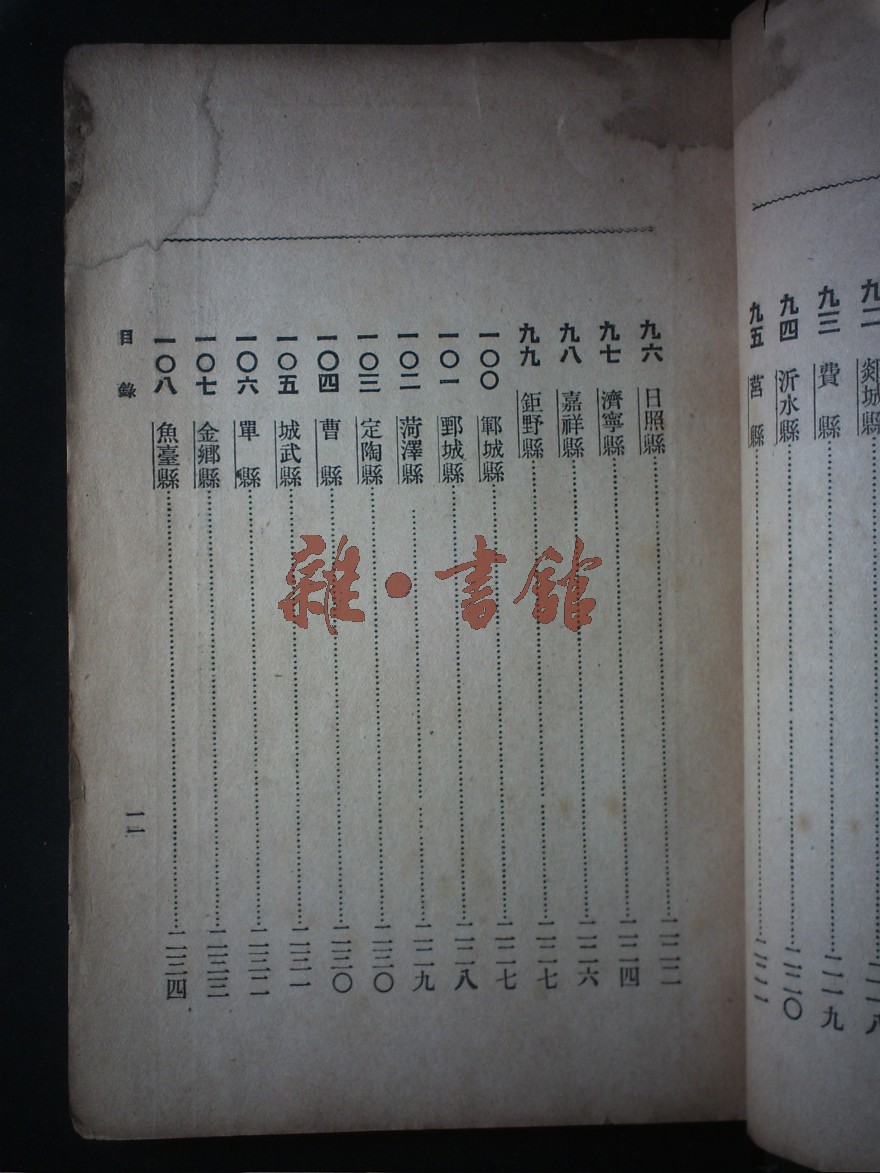 九二 郯城縣……二一八
九三 費縣……二一九
九四 沂水縣……二二〇
九五 莒縣……
九六 日照縣……二二二
九七 濟寧縣……二二四
九八 嘉祥縣……二二六
九九 鉅野縣……二二七
一〇〇 鄆城縣……二二七
一〇一 鄄城縣……二二八
一〇二 菏澤縣……二二九
一〇三 定陶縣……二三〇
一〇四 曹縣……二三〇
一〇五 城武縣……二三一
一〇六 單縣……二三二
一〇七 金鄉縣……二三三
一〇八 魚臺縣……二三四
目錄 一一
雜·書館